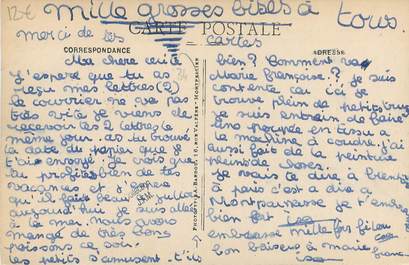 12€ mille grosses bises à tous
merci de tes cartes
CARTE POSTALE
CORRESPONDANCE
ADRESSE
Ma chere cécile
J'espere que tu as
reçu mes lettres (2)
le courrier ne va pas
très vite je viens de
recevoir 2 lettres le
même jour. as tu trouvé
la date du papier que je
t'ai envoyé. je crois que
tu profites bien de tes
vacances et j'espere
qu'il fais beau à
aujourd'hui je suis allée
à la mer. nous avons
mangé de très bons
poissons ce soir.
les petits s'amusent. t'ils
bien? Comment va
Marie françoise? je suis
contente car ici je
trouve plein de petits trucs
je suis entrain de faire
une poupée en tissu a
la machine à coudre. j'ai
aussi fait de la peinture
plein de choses.
je vais te dire à bientôt
à paris c'est a dire a
Montparnasse je t'embrasse
bien fort isa
embrasse mille fois
bon baisers à marie
france
isa